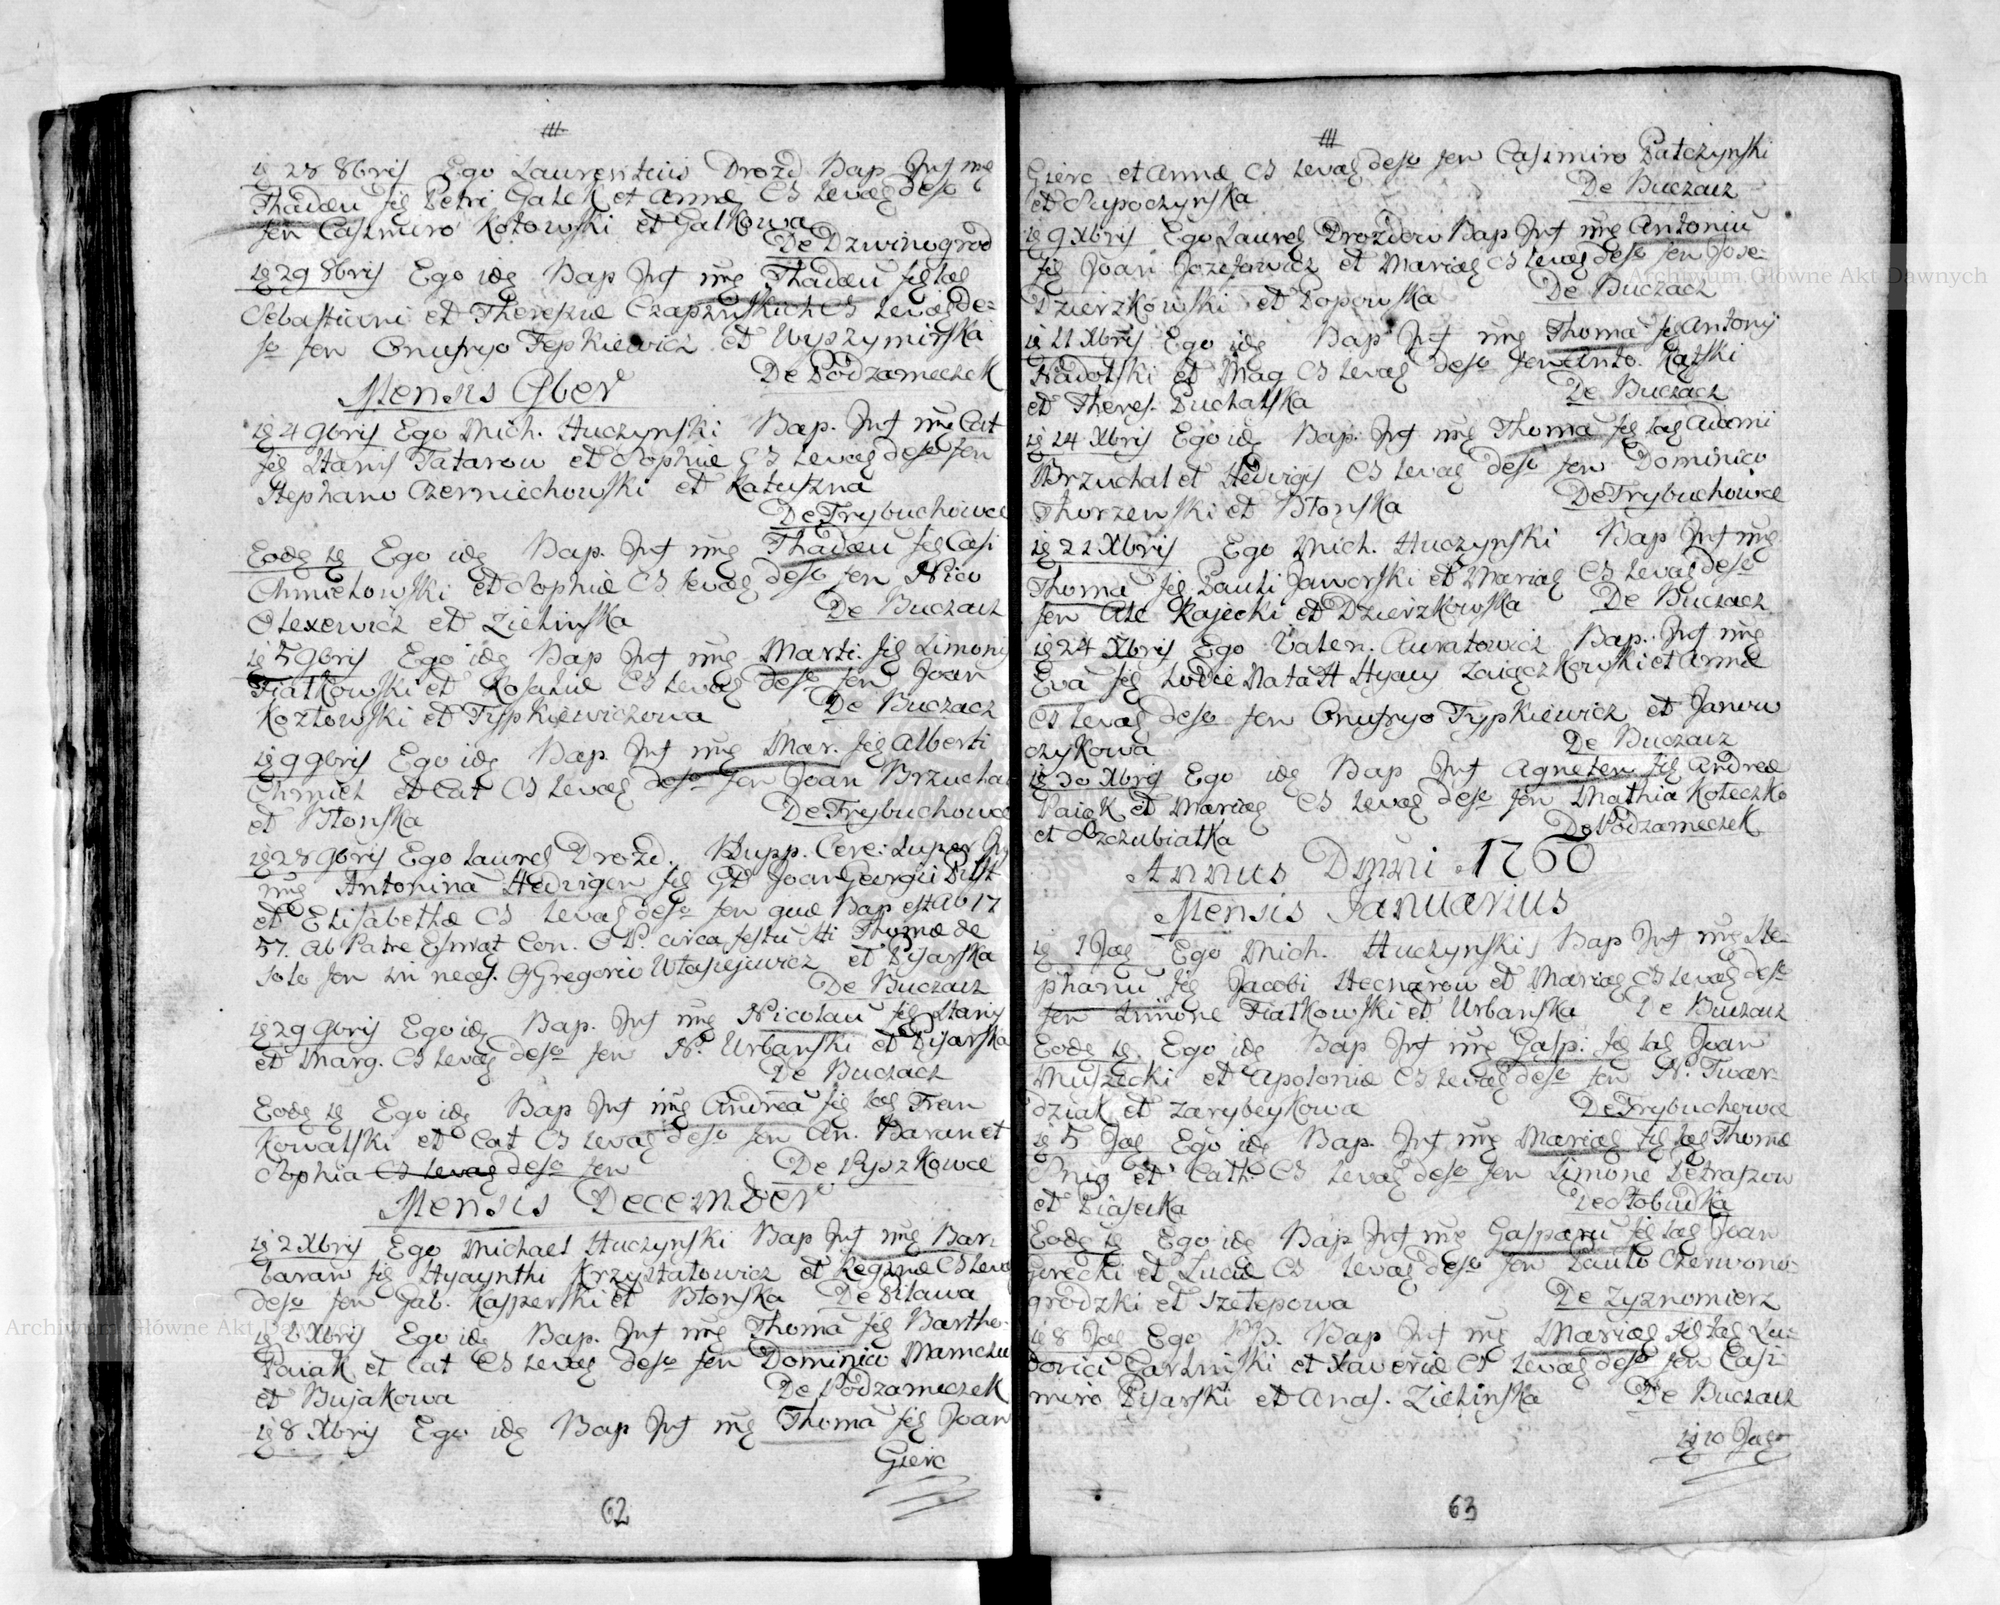 ig 28 8bris Ego Laurentius Drozd Bap Inf nng
Thadæu fig Petri Gałek et Annæ CS Levag deso
fen Casimiro Kotowski et Gałkowa
De Dzwinogrod
ig 29 8bris Ego idg Bap Inf nng Thadæu fig lag
Sebastiani et Theresiæ Czapzinskich CS Levag de=
so fen Onufryo Tepkiewicz et Wyszymirska
De Podzameczek
Mensis 9ber
ig 4 9bris Ego Mich. Huczynski Bap. Inf nng Cat
fig Stanis Tatarow et Sophiæ CS Levag deso fen
Stephano Czerniechowski et Katuszna
De Trybuchowce
Eodg ig Ego idg Bap. Inf nng Thadæu fig Casi
Chmielowski et Sophiæ CS Levag deso fen Nico
Olexewicz et Zielinska
De Buczacz
ig 5 9bris Ego idg Bap Inf nng Marti. fig Simonis
Fiałkowski et Rosaliæ CS Levag deso fen Joan
Kozłowski et Typkiewiczowa
De Buczacz
ig 9 9bris Ego idg Bap Inf nng Mar. fig Alberti
Chmiel et Cat CS Levag deso fen Joan Brzucha
et Błonska
De Trybuchowce
ig 28 9bris Ego Laureg Drozd. Supp. Cere: Super
nng Antonina Hedvigen fig GD Joan Georgii
et Elisabethæ CS Levag deso fen quæ Bap est ab 17
57. Ab Patre Con. circa festu Sti Thomæ de
solo fen in neces. GGregorio Własiejewicz et Pisarska
De Buczacz
ig 29 9bris Ego idg Bap. Inf nng Nicolau fig Stanis
et Marg. CS Levag deso fen N. Urbanski et Pisarska
De Buczacz
Eodg ig Ego idg Bap Inf nng Andrea fig lag Fran
Kowalski et Cat CS Levag deso fen An. Baran et
Sophia CS Levag deso fen
De Pyszkowce
Mensis December
ig 2 Xbris Ego Michael Huczynski Bap Inf nng Bar:
baram fig Hyacynthi Krzyształowicz et Reginæ CS Levag
deso fen Gab. Kasperski et Błonska De Pilawa
ig 6 Xbris Ego idg Bap. Inf nng Thoma fig Bartho-
Paiak et Cat CS Levag deso fen Dominico Mamczu
et Bujakowa
De Podzameczek
ig 8 Xbris Ego idg Bap Inf nng Thoma fig Joan
Gierc
62
Gierc et Annæ CS Levag deso fen Casimiro Pałczynski
et Supoczynska
De Buczacz
ig 9 Xbris Ego Laureg Drozdow Bap Inf nng Antoniu
fig Joan Jozefowicz et Mariag CS Levag deso fen Jose-
Dzierzkowski et Popowska
De Buczacz
ig 11 Xbris Ego idg Bap Inf nng Thoma fig Antonij
Nadolski et Mag CS Levag deso fen Anto. Kątski
et Theres. Puchalska
De Buczacz
ig 14 Xbris Ego idg Bap. Inf nng Thoma fig lag Adami
Brzuchal et Hedvigis CS Levag deso fen Dominico
Thurzewski et Błonska
De Trybuchowce
ig 21 Xbris Ego Mich. Huczynski Bap Inf nng
Thoma fig Pauli Jaworski et Mariag CS Levag deso
fen Ale Rajecki et Dzierzkowska De Buczacz
ig 24 Xbris Ego Valen. Auratowicz Bap. Inf nng
Eva fig hodie Nata H Hyacy Zaiączkowski et Annæ
CS Levag deso fen Onufryo Typkiewicz et Janow
czykowa
De Buczacz
ig 30 Xbris Ego idg Bap Inf Agneten fig Andreæ
Paiak et Mariag CS Levag deso fen Mathia Koteczko
et Szczubiałka
De Podzameczek
Annus Dmni 1760
Mensis Januarius
ig 1 Jag Ego Mich. Huczynski Bap Inf nng Ste-
phanu fig Jacobi Hecnarow et Mariag CS Levag deso
fen Simone Fiałkowski et Urbanska De Buczacz
Eodg ig. Ego idg Bap Inf nng Gasp: fig lag Joan
Muszecki et Apoloniæ CS Levag deso fen N. Twar-
dziak et Zarybeykowa
De Trybuchowce
ig 5 Jag Ego idg Bap. Inf nng Mariag fig lag Thomæ
Snig et Cath. CS Levag deso fen Simone Petraszow
et Piasecka
De Słobudka
Eodg ig Ego idg Bap Inf nng Gasparu fig lag Joan
Gorecki et Luciæ CS Levag deso fen Paulo Czerwono-
grodzki et Szełepowa
De Zyznomierz
ig 8 Jag Ego Bap Inf nng Mariag fig lag Lu-
dovici Garlinski et Xaveriæ CS Levag deso fen Casi
miro Pisarski et Anas. Zielinska De Buczacz
ig 10 Jag
63
Archiwum Główne Akt Dawnych
Archiwum Główne Akt Dawnych